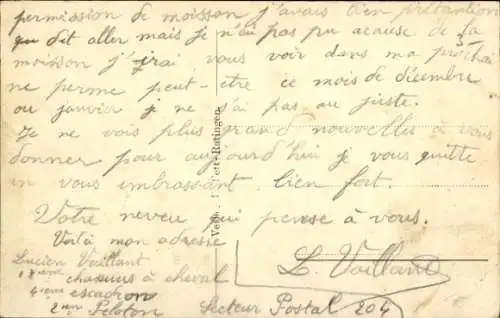 permission de moisson j'avais bien prétantion
qu dit aller mais je n'ai pas pu acause de la
moisson j'irai vous voir dans ma prochai
ne perme peut-etre ce mois de décembre
ou janvier je ne s'ai pas au jiste.
Je ne vois plus grand nouvelles à vous
donner pour aujourd'hui je vous quitte
en vous embrassant bien fort.
Votre neveu qui pense à vous.
Voila mon adresse
L. Vaillant
Lucien Vaillant
chasseurs à cheval
4ième escadron
2ème Peloton Secteur Postal 204